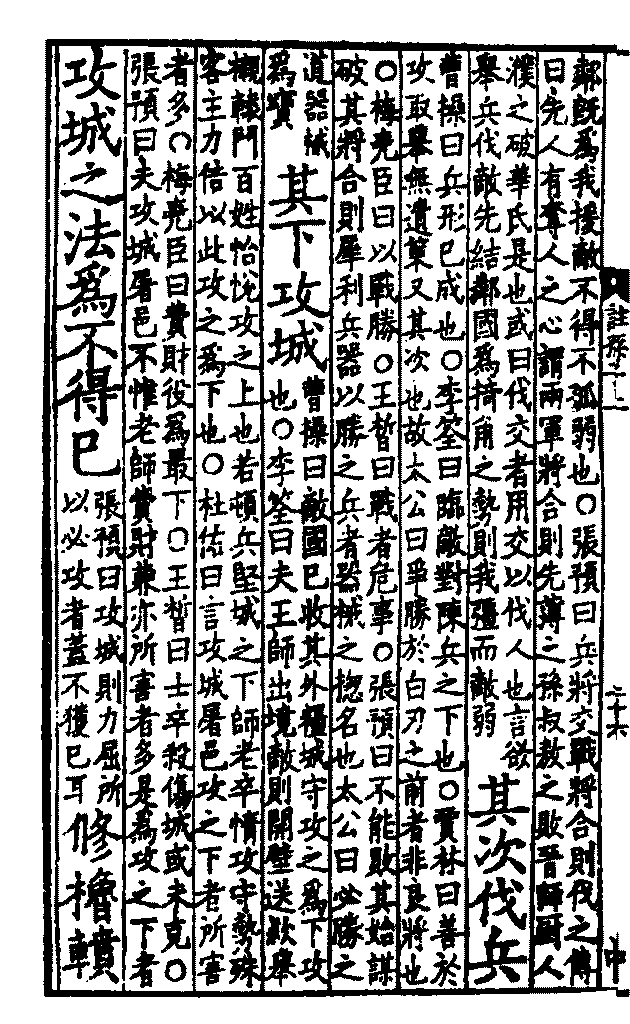 鄰旣爲我援敵不得不孤弱也○張預曰兵將交戰將合則伐之傳
曰先人有奪人之心謂兩軍將合則先薄之孫叔敖之敗晉師厨人
濮之破華氏是也或曰伐交者用交以伐人也言欲
舉兵伐敵先結鄰國爲掎角之勢則我彊而敵弱
其次伐兵
曹操曰兵形已成也○李筌曰臨敵對陳兵之下也○賈林曰善於
攻取舉無遺策又其次也故太公曰爭勝於白刃之前者非良將也
○梅堯臣曰以戰勝○王晳曰戰者危事○張預曰不能敗其始謀
破其將合則犀利兵器以勝之兵者器械之揔名也太公曰必勝之
道器械
爲寶
其下攻城
曹操曰敵國已收其外糧城守攻之爲下攻
也○李筌曰夫王師出境敵則開壁送款舉
櫬轅門百姓怡悅攻之上也若頓兵堅城之下師老卒惰攻守勢殊
客主力倍以此攻之爲下也○杜佑曰言攻城屠邑攻之下者所害
者多○梅堯臣曰費財役爲最下○王晳曰士卒殺傷城或未克○
張預曰夫攻城屠邑不惟老師費財兼亦所害者多是爲攻之下者
攻城之法爲不得已
張預曰攻城則力屈所
以必攻者蓋不獲已耳
修櫓轒
註孫子上
二十六
中